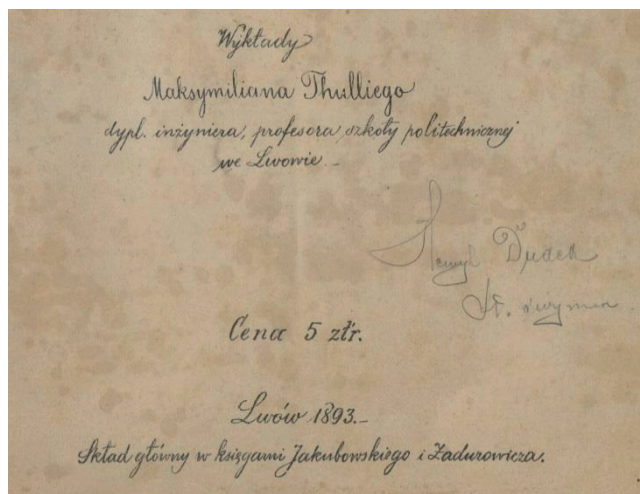 Wykłady
Maksymiliana Thulliego
dypl. inżyniera, profesora szkoły politechnicznej
we Lwowie. -
Dudek
Cena 5 złr.
Lwów 1893. -
Skład główny w księgarni Jakubowskiego i Zadurowicza.